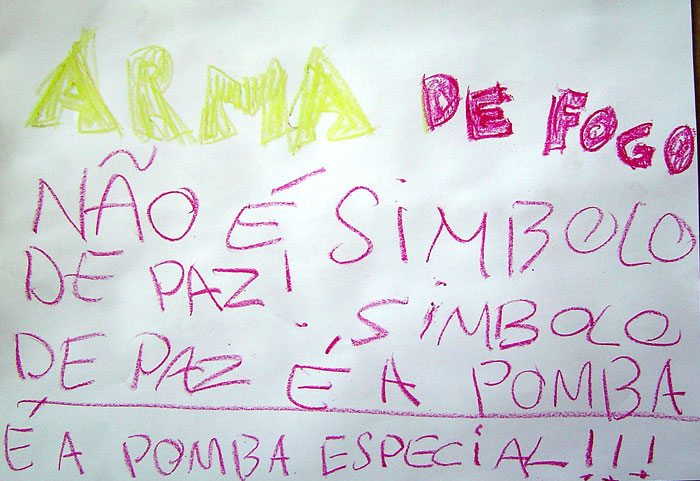 ARMA DE FOGO
NÃO É SiMBOLO
DE PAZ!
SiMBOLO
DE PAZ É A POMBA
É A POMBA ESPECiAL!!!